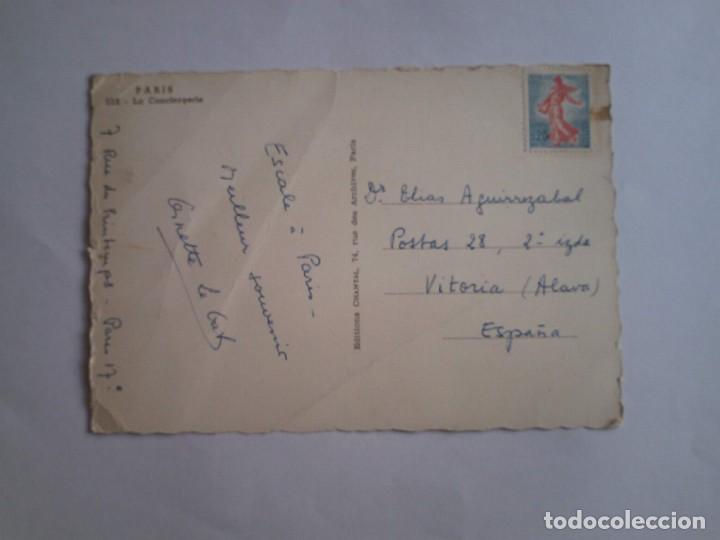 PARIS
- La Conciergerie
7 Rue du Printemps - Paris 17°
Escale à Paris -
Meilleur souvenir
Editions CHANTAL, 74, rue des Archives, Paris
Dr. Elias Aguirrezabal
Postas 28, 2º izda
Vitoria (Alava)
España
todocoleccion.net